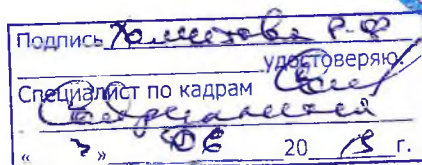 Подпись Хаметова Р.Ф.
удостоверяю.
Специалист по кадрам
« 7 » 06 20 19 г.